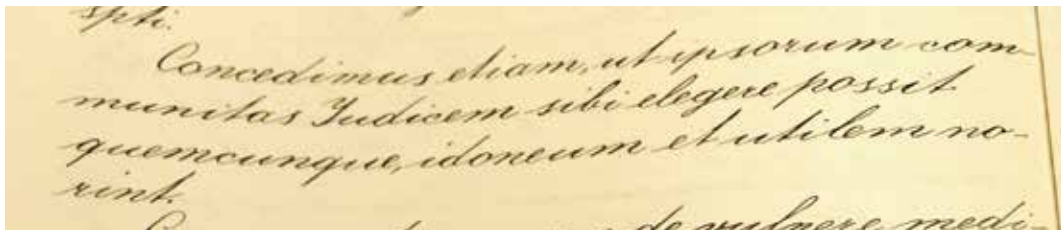 spti.
Concedimus etiam, ut ipsorum com-
munitas Judicem sibi elegere possit
quemcunque, idoneum et utilem no-
rint.
de vulnere medi-